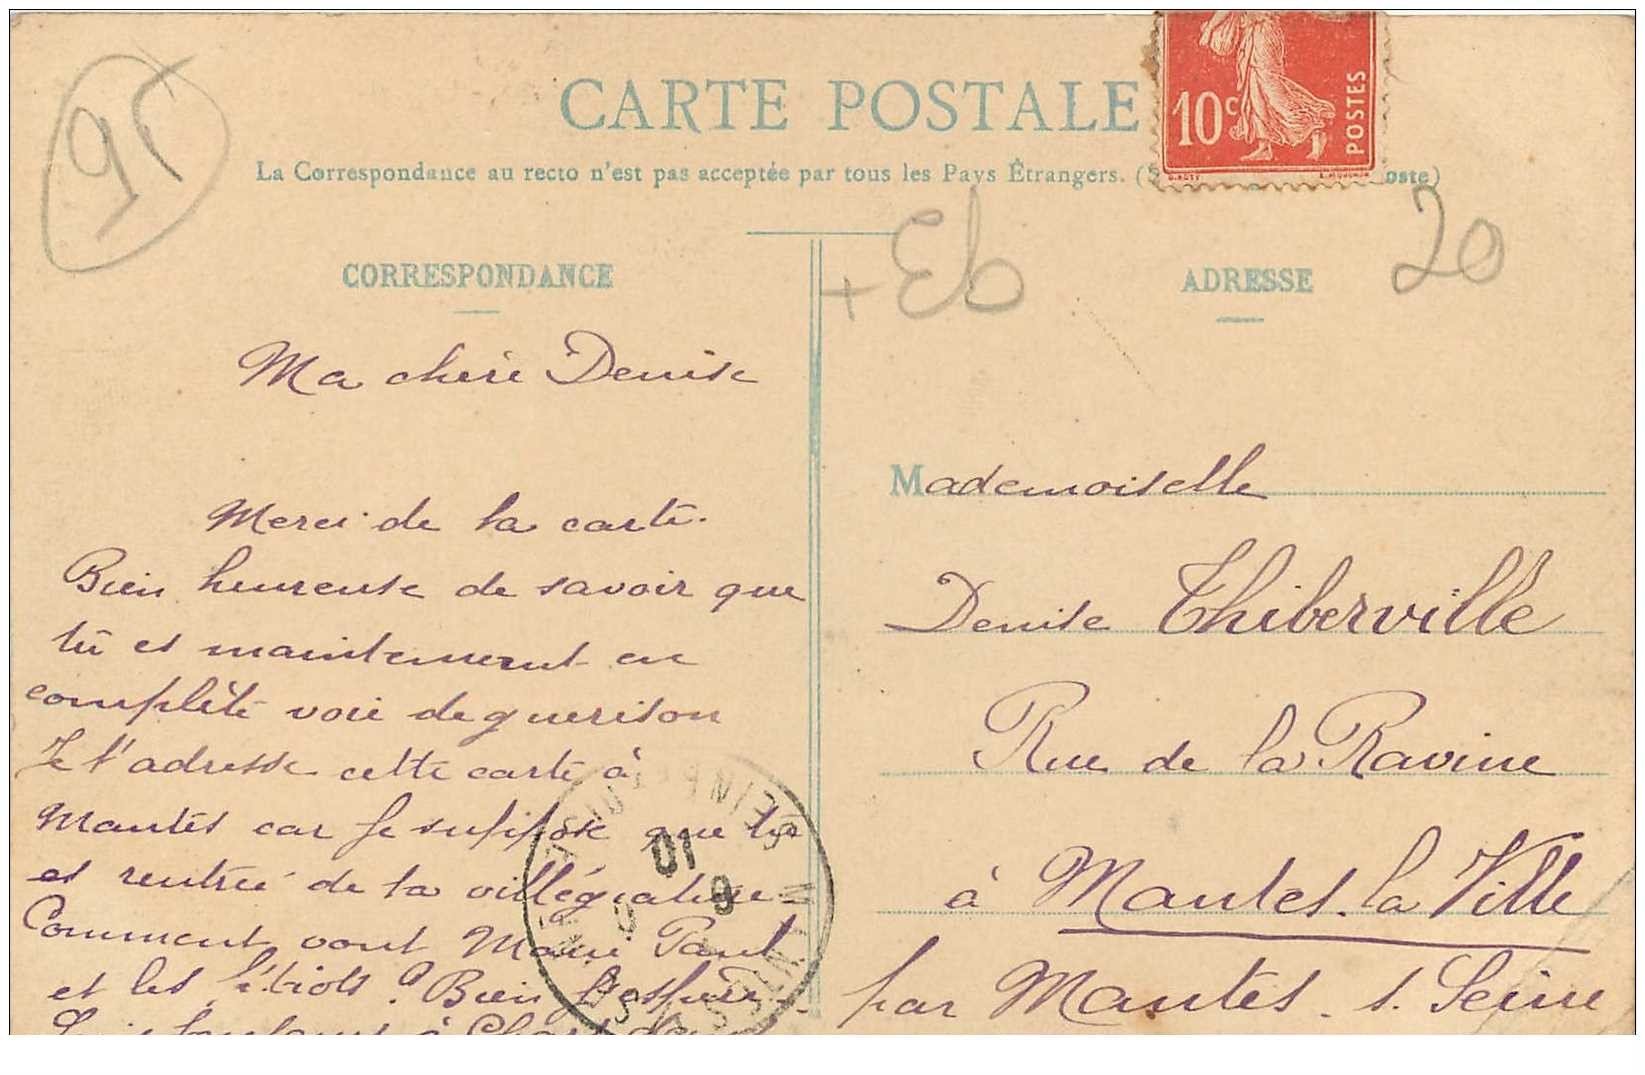 95
CARTE POSTALE
La Correspondance au recto n'est pas acceptée par tous les Pays Étrangers. (S oste)
10c
POSTES
+ Eb
20
CORRESPONDANCE
Ma chère Denise
Merci de la carte.
Bien heureuse de savoir que
tu es maintenant en
complète voie de guerison
Je t'adresse cette carte à
Mantes car je suppose que tu
es rentrée de ta villégiature
Comment vont Marie Paul
et les p'tiots? Bien j'espère.
toujours à
01
9
ADRESSE
Mademoiselle
Denise Thiberville
Rue de la Ravine
à Mantes. la Ville
par Mantes. s. Seine